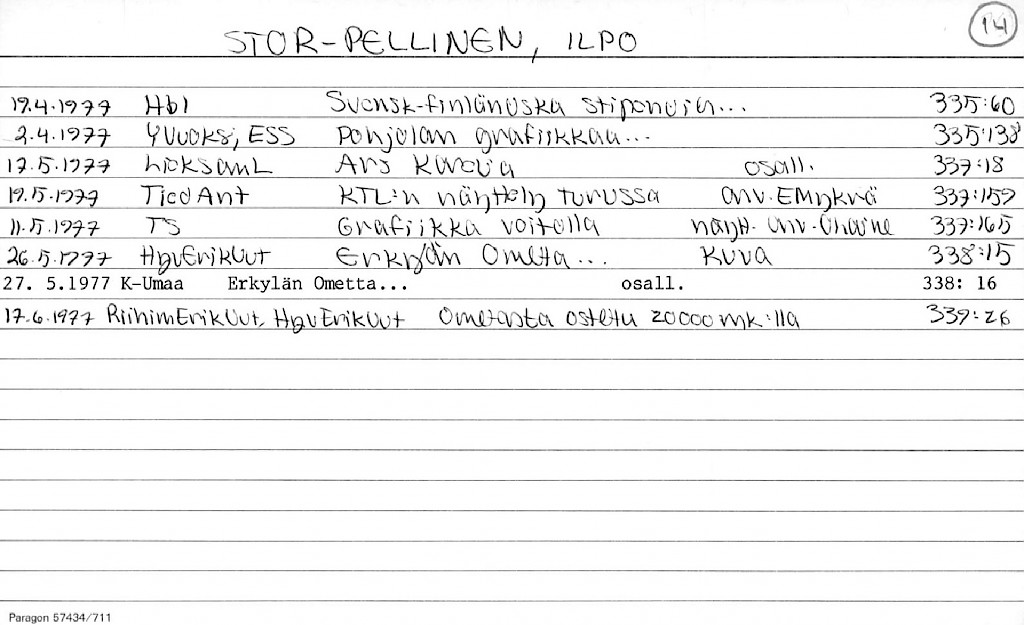 STOR-PELLINEN, ILPO 14
19.4.1977 Hbl Svensk-finländska stipendia... 335:60
2.4.1977 YVuoksi, ESS Pohjolan grafiikkaa... 335:138
17.5.1977 LieksanL Ars Karelia osall. 337:18
19.5.1977 TiedAnt KTL:n näyttely Turussa arv. EMykrä 337:159
11.5.1977 TS Grafiikka voitolla näytt. arv. UHaine 337:165
26.5.1977 HgvErikUut Erkylän Ometta... kuva 338:15
27. 5.1977 K-Umaa Erkylän Ometta... osall. 338: 16
17.6.1977 RiihimErikUut, HgvErikUut Ometasta ostettu 20000 mk:lla 339:26
Paragon 57434/711